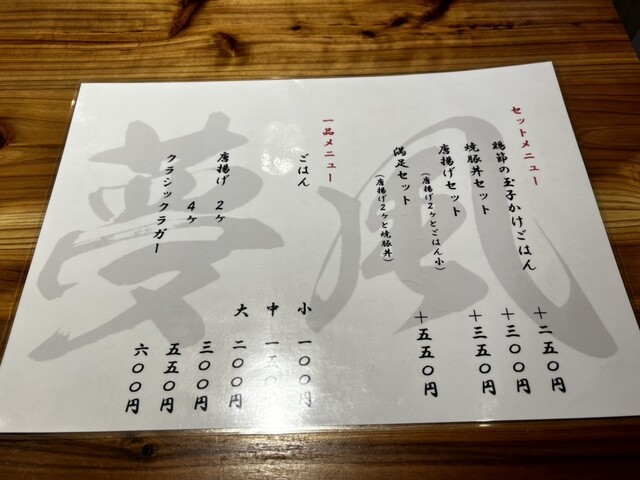 セットメニュー
鶏節の玉子かけごはん
+二五〇円
焼豚丼セット
+三〇〇円
唐揚げセット
(唐揚げ2ケとごはん小)
+三五〇円
満足セット
(唐揚げ2ケと焼豚丼)
+五五〇円
一品メニュー
ごはん
小 一〇〇円
中 一五〇円
大 二〇〇円
唐揚げ 2ケ
三〇〇円
4ケ
五五〇円
クラシックラガー
六〇〇円
風
夢